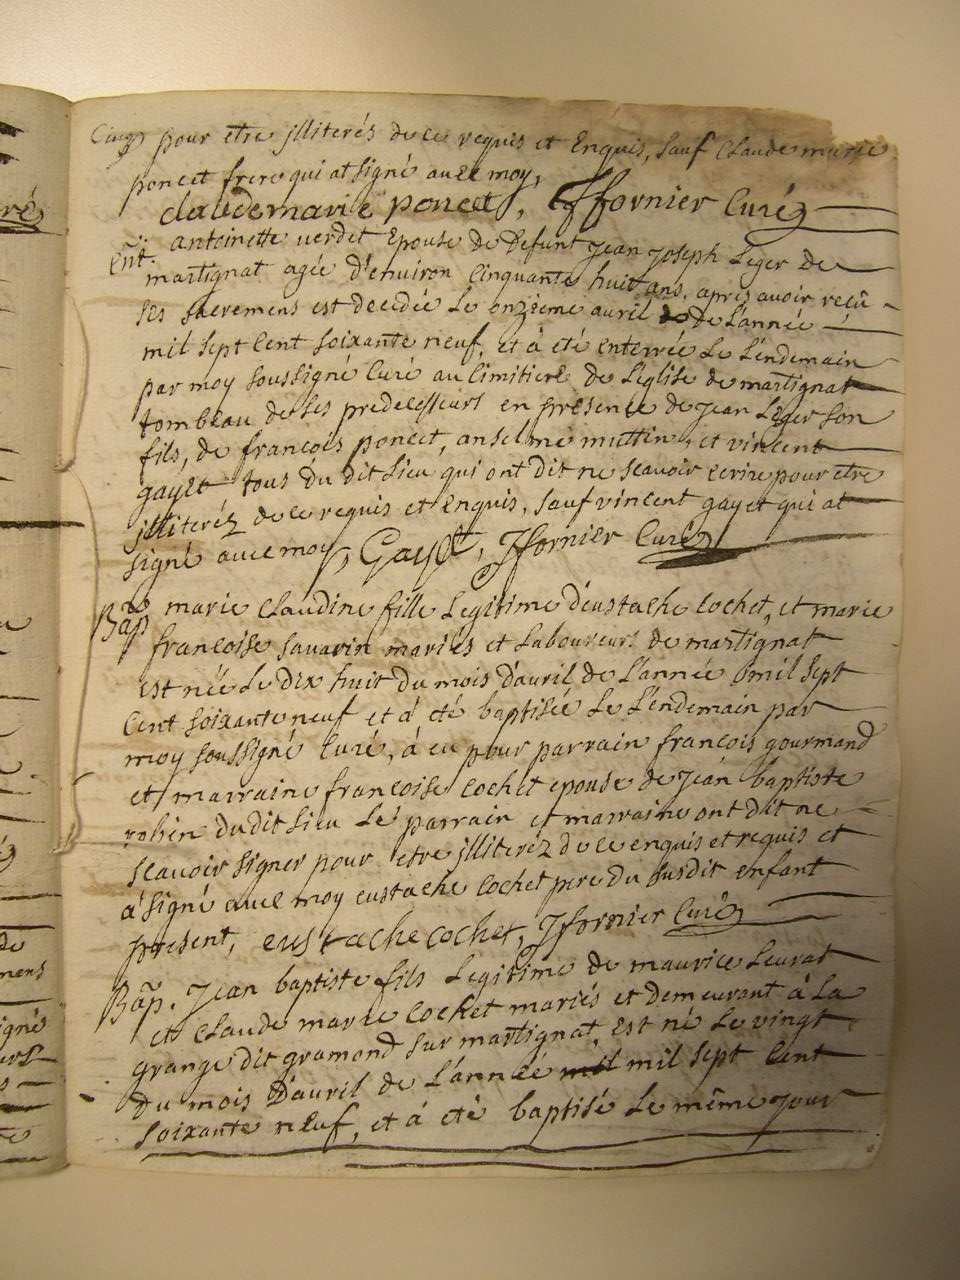 pour etre jlliterés de ce requis et Enquis, sauf Claude marie
poncet frere qui at signé avec moy,
claude marie poncet, Jffornier Curé
Ent. antoinette verdet Epouse de Defunt Jean Joseph Leger de
martignat agée d'environ Cinquante huit ans, apres avoir reçû
ses sacremens est decedée Le onzieme avril de L'année
mil sept Cent soixante neuf, et à été enterrée Le Lendemain
par moy soussigné Curé au Cimitiere de L'eglise de martignat
tombeau de ses predecesseurs en presence de Jean Leger son
fils, de françois poncet, anselme muttin, et vincent
gayet tous du dit Lieu qui ont dit ne scavoir ecrire pour etre
jlliteréz de ce requis et Enquis, sauf vincent gayet qui at
signé avec moy, Gayet, Jffornier Curé
Bap marie Claudine fille Legitime d'eustache Cochet, et marie
francoise savarin mariés et Laboureurs de martignat
est née Le dix huit du mois d'avril de L'année mil sept
Cent soixante neuf et à été baptisée Le Lendemain par
moy soussigné Curé, à eu pour parrain françois gourmand
et marraine francoise Cochet epouse de Jean baptiste
robin du dit Lieu Le parrain et marraine ont dit ne
scavoir signer pour etre jlliteréz de ce enquis et requis et
à signé avec moy eustache Cochet pere du susdit enfant
present, eustache cochet, Jffornier Curé
Bap. Jean baptiste fils Legitime de maurice Levrat
et Claude marie Cochet mariés et demeurant à La
grange dit gramond sur martignat, est né Le vingt
du mois D'avril de L'année mil sept Cent
soixante neuf, et à été baptisé Le même Jour